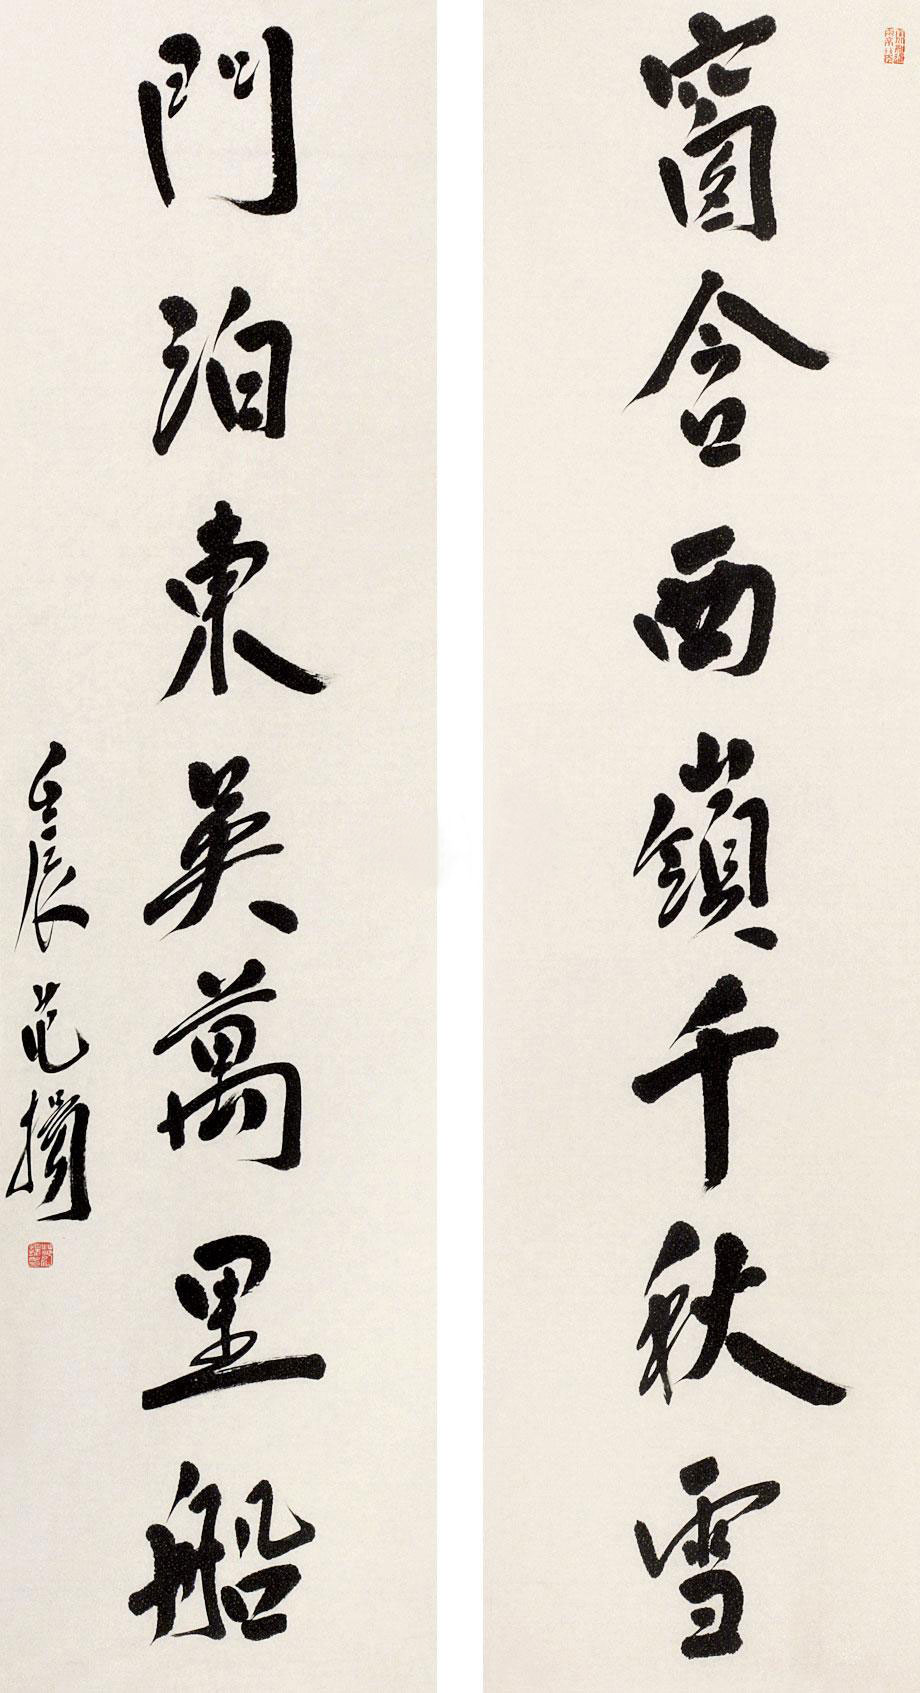 窗含西嶺千秋雪
門泊東英萬里船
壬辰